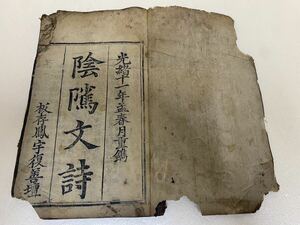 光緒十一年孟春月重鐫
陰隲文詩
板存鳳字復善壇